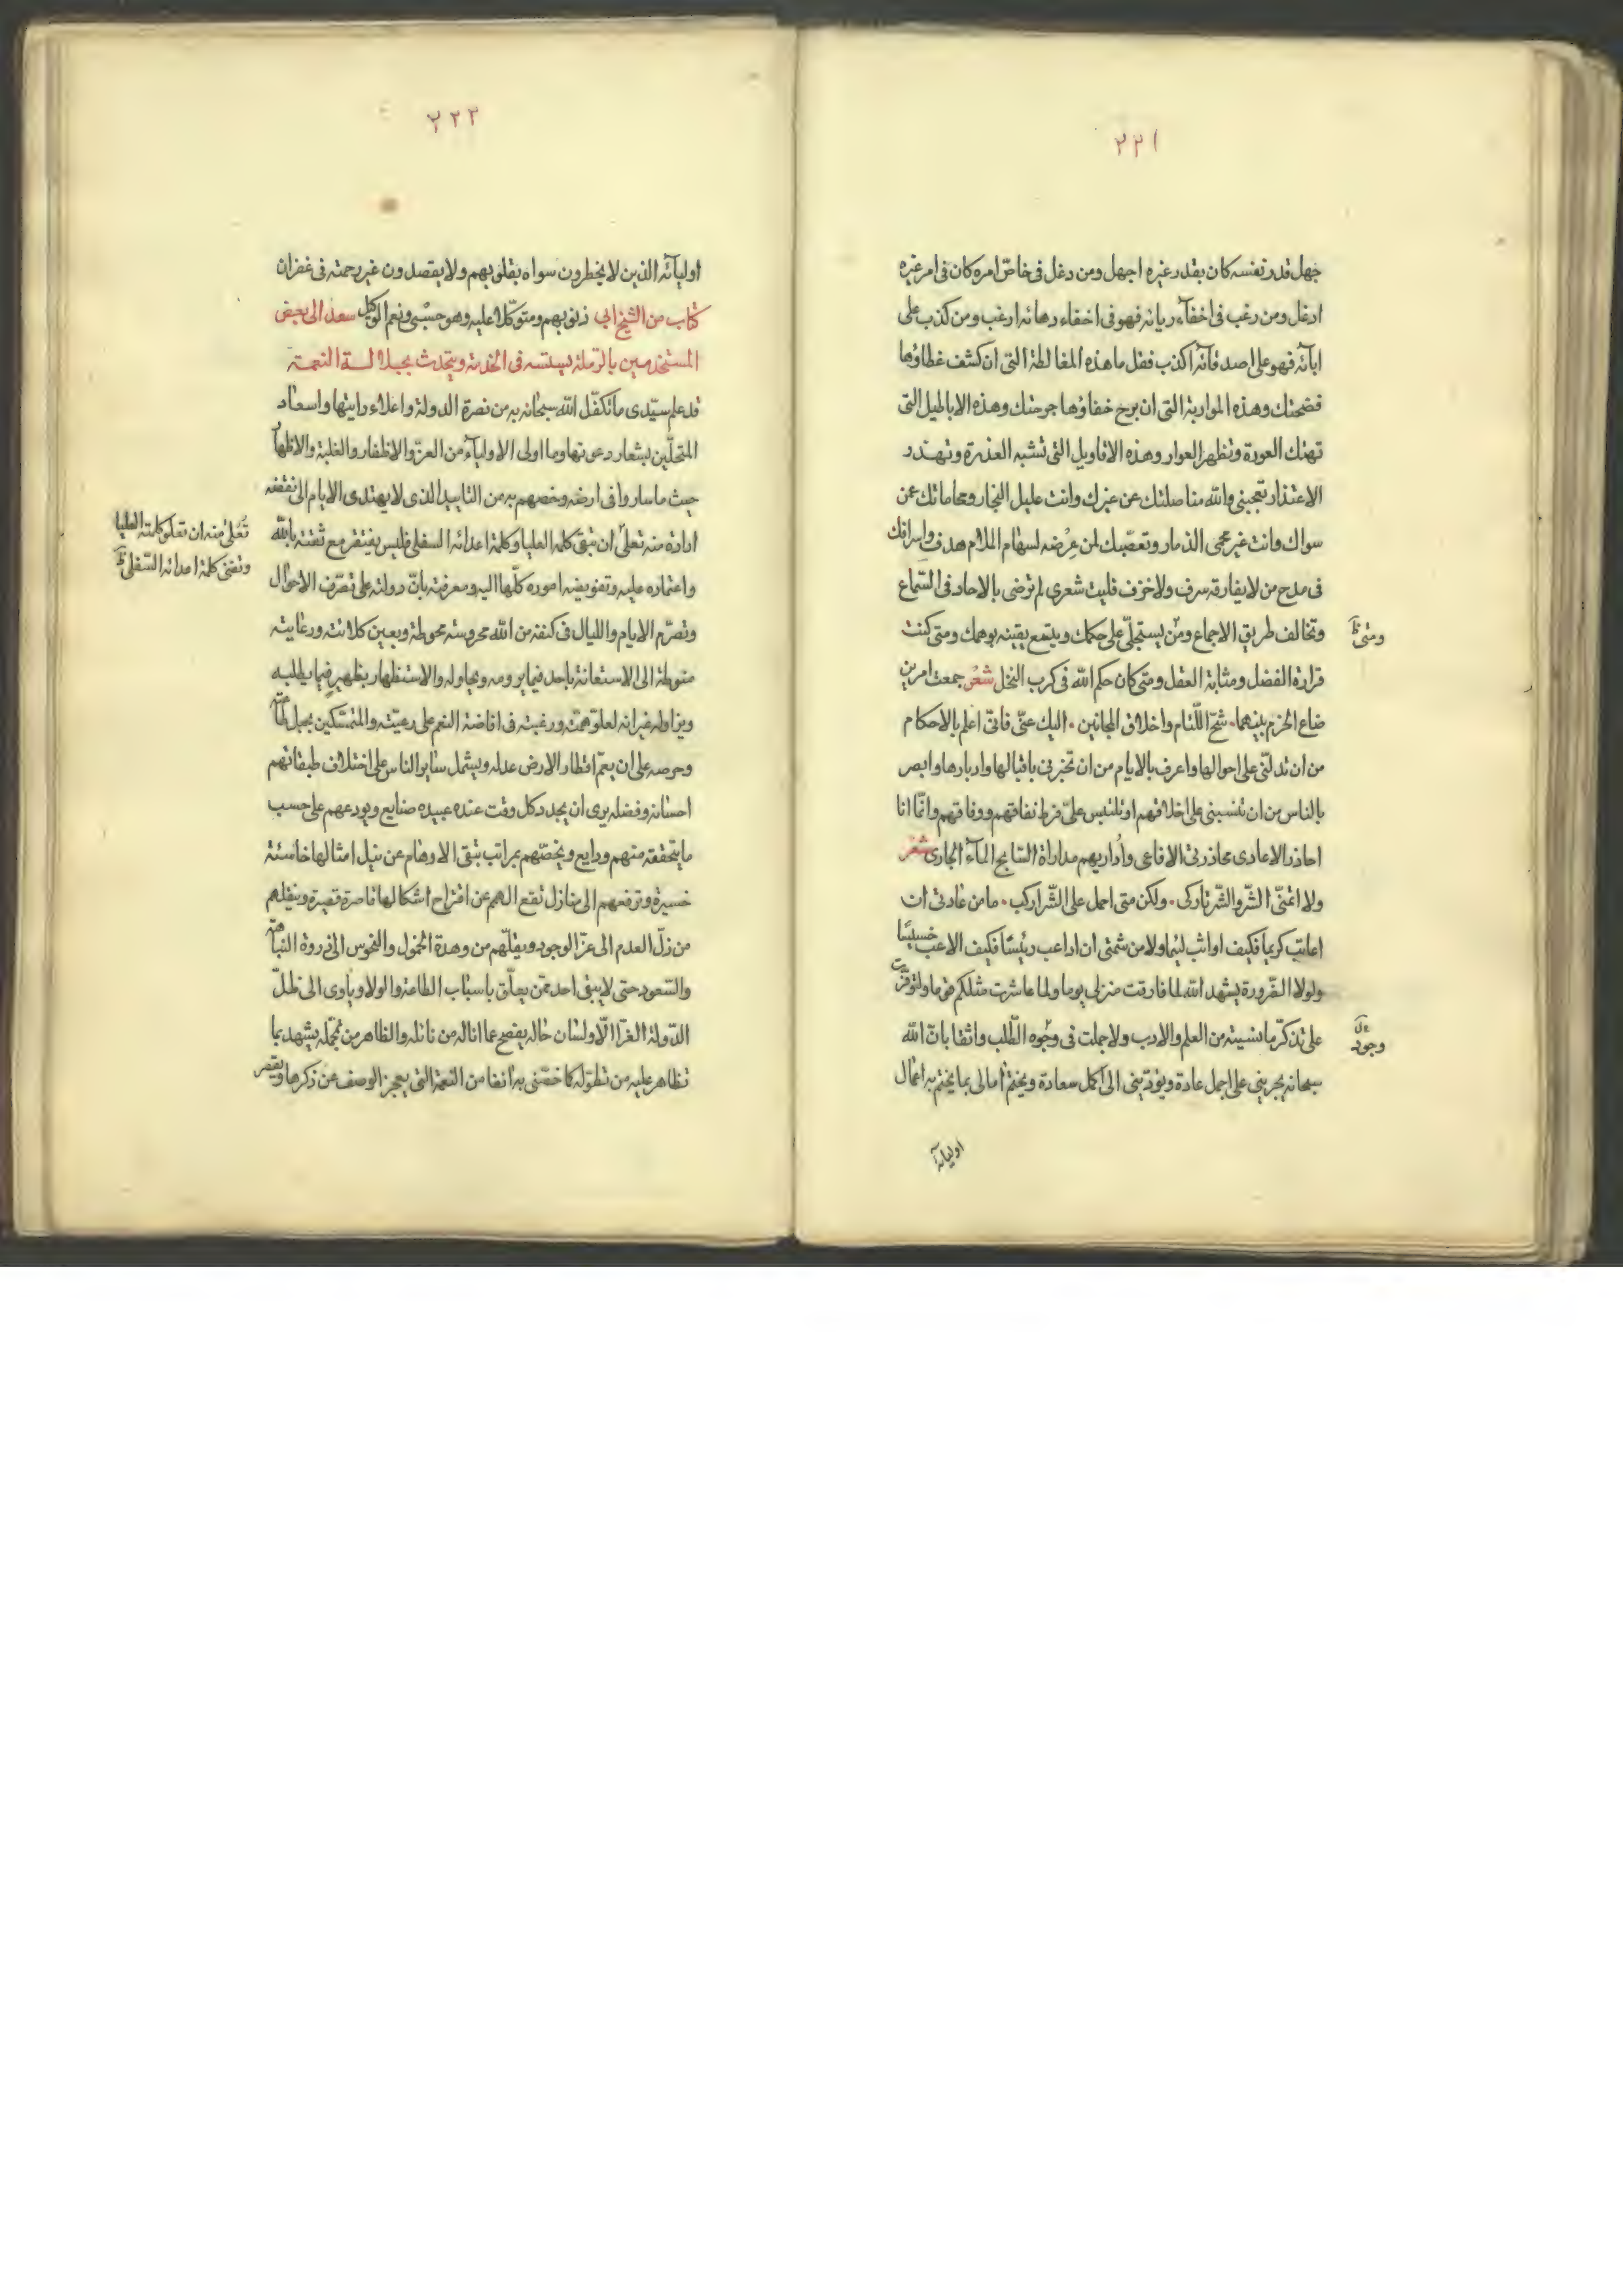 ٢٢١
جهل قدر نفسه كان بقدر غيره اجهل ومن دغل فى خاصّ امره كان فى امر غيره
ادغل ومن رغب فى اخفآء ريائه فهو فى اخفاء رهائه ارغب ومن كذب على
ابآئه فهو على اصدقآئه اكذب فقل ما هذه المغالطة التى ان كشف غطاؤها
فضحتك وهذه المواربة التى ان برح خفاؤها جرحتك وهذه الاباطيل التى
تهتك العورة وتظهر العوار وهذه الاقاويل التى تشبه العذرة وتهدر
الاعتذار تعجبنى والله مناضلتك عن غيرك وانت عليل النجار ومحاماتك عن
سواك وانت غير محمى الذمار وتعصّبك لمن عرضه لسهام الملام هدف واسرافك
فى مدح من لا يفارقه سرف ولا خرف فليت شعرى لم ترضى بالاحاد فى السّماع
وتخالف طريق الاجماع ومن يستجلّى على حكمك ويتبع يقينه بوهمك ومتى كنت
ومتى ظ
قرارة الفضل ومثابة العقل ومتى كان حكم الله فى كرب النخل شعر جمعت امرين
ضاع الحزم بينهما • شحّ اللّئام واخلاق المجانين • اليك عنّى فانّى اعلم بالاحكام
من ان تدلّنى على احوالها واعرف بالايام من ان تخبرنى باقبالها وادبارها وابصر
بالناس من ان تنسبنى على اخلاقهم او تلتبس علىّ فرط نفاقهم ووفاقهم وانّما انا
احاذر الاعادى محاذرتى الافاعى واُداريهم مداراة السّابح المآء الجارى شعر
ولا اتمنّى الشّر والشّر تاركى • ولكن متى احمل على الشّر اركب • ما من عادتى ان
اعاتب كريما فكيف اواثب لئيما ولا من شيمتى ان اداعب رئيسًا فكيف الاعب خسيسًا
ولولا الضّرورة يشهد الله لما فارقت منزلى يوما ولما عاشرت مثلكم قوما ولتوفّرت
على تذكّر ما نسيته من العلم والادب ولاجملت فى وجوه الطّلب واثقا بانّ الله
وجود
سبحانه يجرينى على اجمل عادة ويؤدّينى الى اكمل سعادة ويختم امالى بما يختم به اعمال
اوليائه
٢٢٢
اوليآئه الذين لا يخطرون سواه بقلوبهم ولا يقصدون غير رحمته فى غفران
ذنوبهم ومتوكّلا عليه وهو حسبى ونعم الوكيل كتاب من الشيخ ابى سعد الى بعض
المستخدمين بالرملة يستسه فى الخدمة ويتحدث بجلالة النعمة
قد علم سيّدى ما تكفّل الله سبحانه به من نصرة الدولة واعلاء رايتها واسعاد
المتحلّين بشعار دعوتها وما اولى الاوليآء من العزّ والاظفار والغلبة والاظهار
حيث ما ساروا فى ارضه وخصهم به من التاييد الذى لا يهتدى الايام الى نقضه
ارادة منه تعلّى ان تبقى كلمه العليا وكلمة اعدائه السفلى فليس يفتقر مع ثقته بالله
تُعلى منه ان تعلو كلمته العليا
وتفنى كلمة اعدائه السّفلى ظ
واعتماده عليه وتفويضه اموره كلّها اليه ومعرفته بانّ دولته على تصرّف الاحوال
وتصرّم الايام والليال فى كنفه من الله محروسة محوطة وبعين كلائته ورعايته
منوطة الى الاستعانة باحد فيما يرومه ويحاوله والاستظهار بظهير فيما يطلبه
ويزاوله غير انه لعلوّ همّته ورغبته فى افاضة النعم على رعيّته والمتمسّكين بحبل طاعته
وحرصه على ان يعمّ اقطار الارض عدله ويشمل سائر الناس على اختلاف طبقاتهم
احسانه وفضله يرى ان يجدد كل وقت عنده عبيده صنايع ويودعهم على حسب
ما يتحققه منهم ودايع ويخصّهم بمراتب تبقى الاوهام عن نيل امثالها خاسئة
خسيرة وترفعهم الى منازل تقع الهمم عن اقتراح اشكالها قاصرة قصيرة وينقلهم
من ذلّ العدم الى عزّ الوجود ويقلّهم من وهدة الخمول والنحوس الى ذروة النباهة
والسّعود حتى لا يبقى احد ممّن يعلّق باسباب الطاعة والولا وياوى الى ظلّ
الدّولة الغرّا الّا ولسان حاله يفصح عما اناله من نائله والظاهر من تجمّله يشهد بما
تظاهر عليه من تطوّله كما خصّنى به انفا من النعمة التى يعجز الوصف عن ذكرها ويقصر